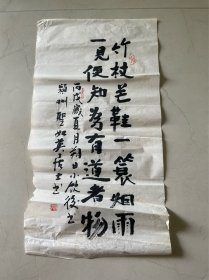 竹杖芒鞋一簑烟雨
一见便知为有道者物
丙戌岁夏月朔日小饮後书
颍州